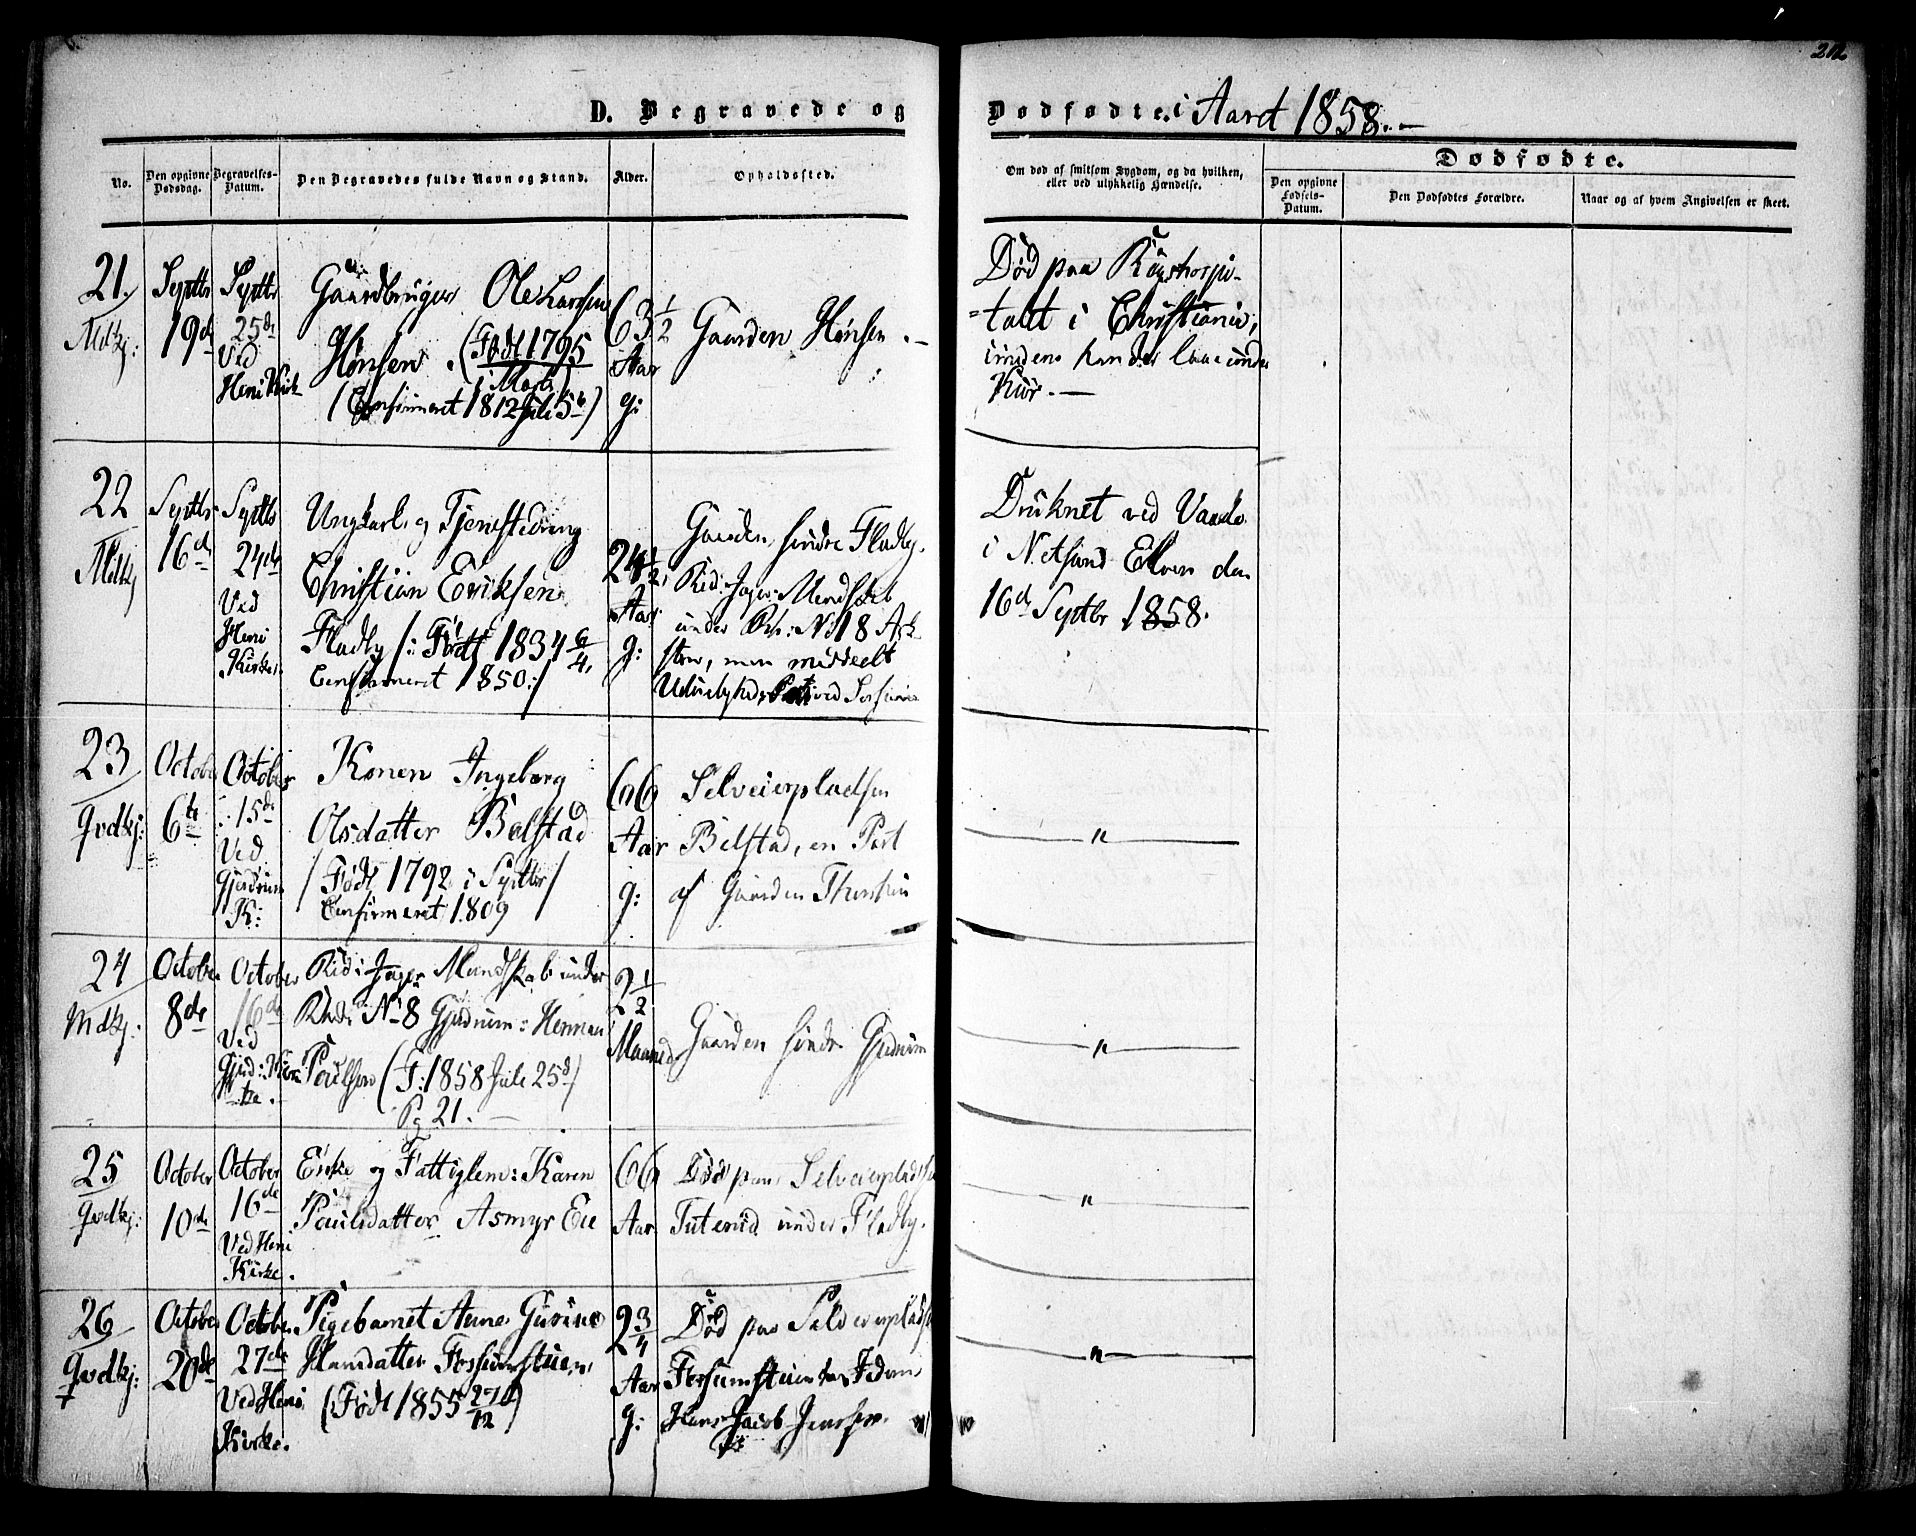 212
D. Begravede og Dødfødte i Aaret 1858.-
No.
Den opgivne Dødsdag.
Begravelses-Datum.
Den Begravedes fulde Navn og Stand.
Alder.
Opholdssted.
Om død af smitsom Sygdom, og da hvilken,
eller ved ulykkelig Hændelse.
Dødfødte.
Den opgivne
Fødsels-
Datum.
Den Dødfødtes Forældre.
Naar og af hvem Angivelsen er skeet.
21.
Mdkj:
Septbr
19de
Septbr
25de
Ved
Heni Kirk
Gaardbruger Ole Larssen
Hønsen. (Født 1795
i Marts)
(Confirmeret 1812 Juli 5te)
63 1/2
Aar
g:
Gaarden Hønsen.-
Død paa Rigshospi-
=talet i Christiania,
imidens han der laae under
Kur.-
22
Mdkj
Septbr
16de
Septbr
24de
Ved
Heni
Kirke.
Ungkarl og Tjenestedreng
Christian Eriksen
Fladby /: Født 1834 6/4,
Confirmeret 1850:/
24 1/2
Aar
g:
Gaarden søndre Fladby.
Rid: Jæger: Mandskab
under No 18 Ask
men meddeelt
Druknet ved Vaade
i Nitsund Elven den
16de Septbr 1858.
23
Qvdkj:
October
6te
October
15de
Ved
Gjerdrum
K:
Konen Ingeborg
Olsdatter Bølstad
/ Født 1792 i Septbr /
Confirmeret 1809
66
Aar
g:
Selveierpladsen
Bølstad, en Part
af Gaarden
"
24
Mdkj.
October
8de
October
16de
Ved
Gjerd: Kir
ke.
Rid: Jæger Mandskab under
No 8 Gjerdrum: Herman
Poulsen (F: 1858 Juli 25de)
Pg 21.-
2 1/2
Maaned
Gaarden søndre Gjerdrum
"
25
Qvdkj:
October
10de
October
16de
Ved Heni
Kirke.
Enke og Fattiglem: Karen
Paulsdatter Asmyr Eie
66
Aar
Død paa Selveierpladsen
under Fladby.
"
26
Qvdkj:
October
20de
October
27de
Ved Heni
Kirke.
Pigebarnet Anne Gurine
Hansdatter Fossumstuen
(Født 1855 27de/12)
2 3/4
Aar
g:
Død paa Selveierpladsen
Fossumstuen
Hans Jacob Jenssen.
"